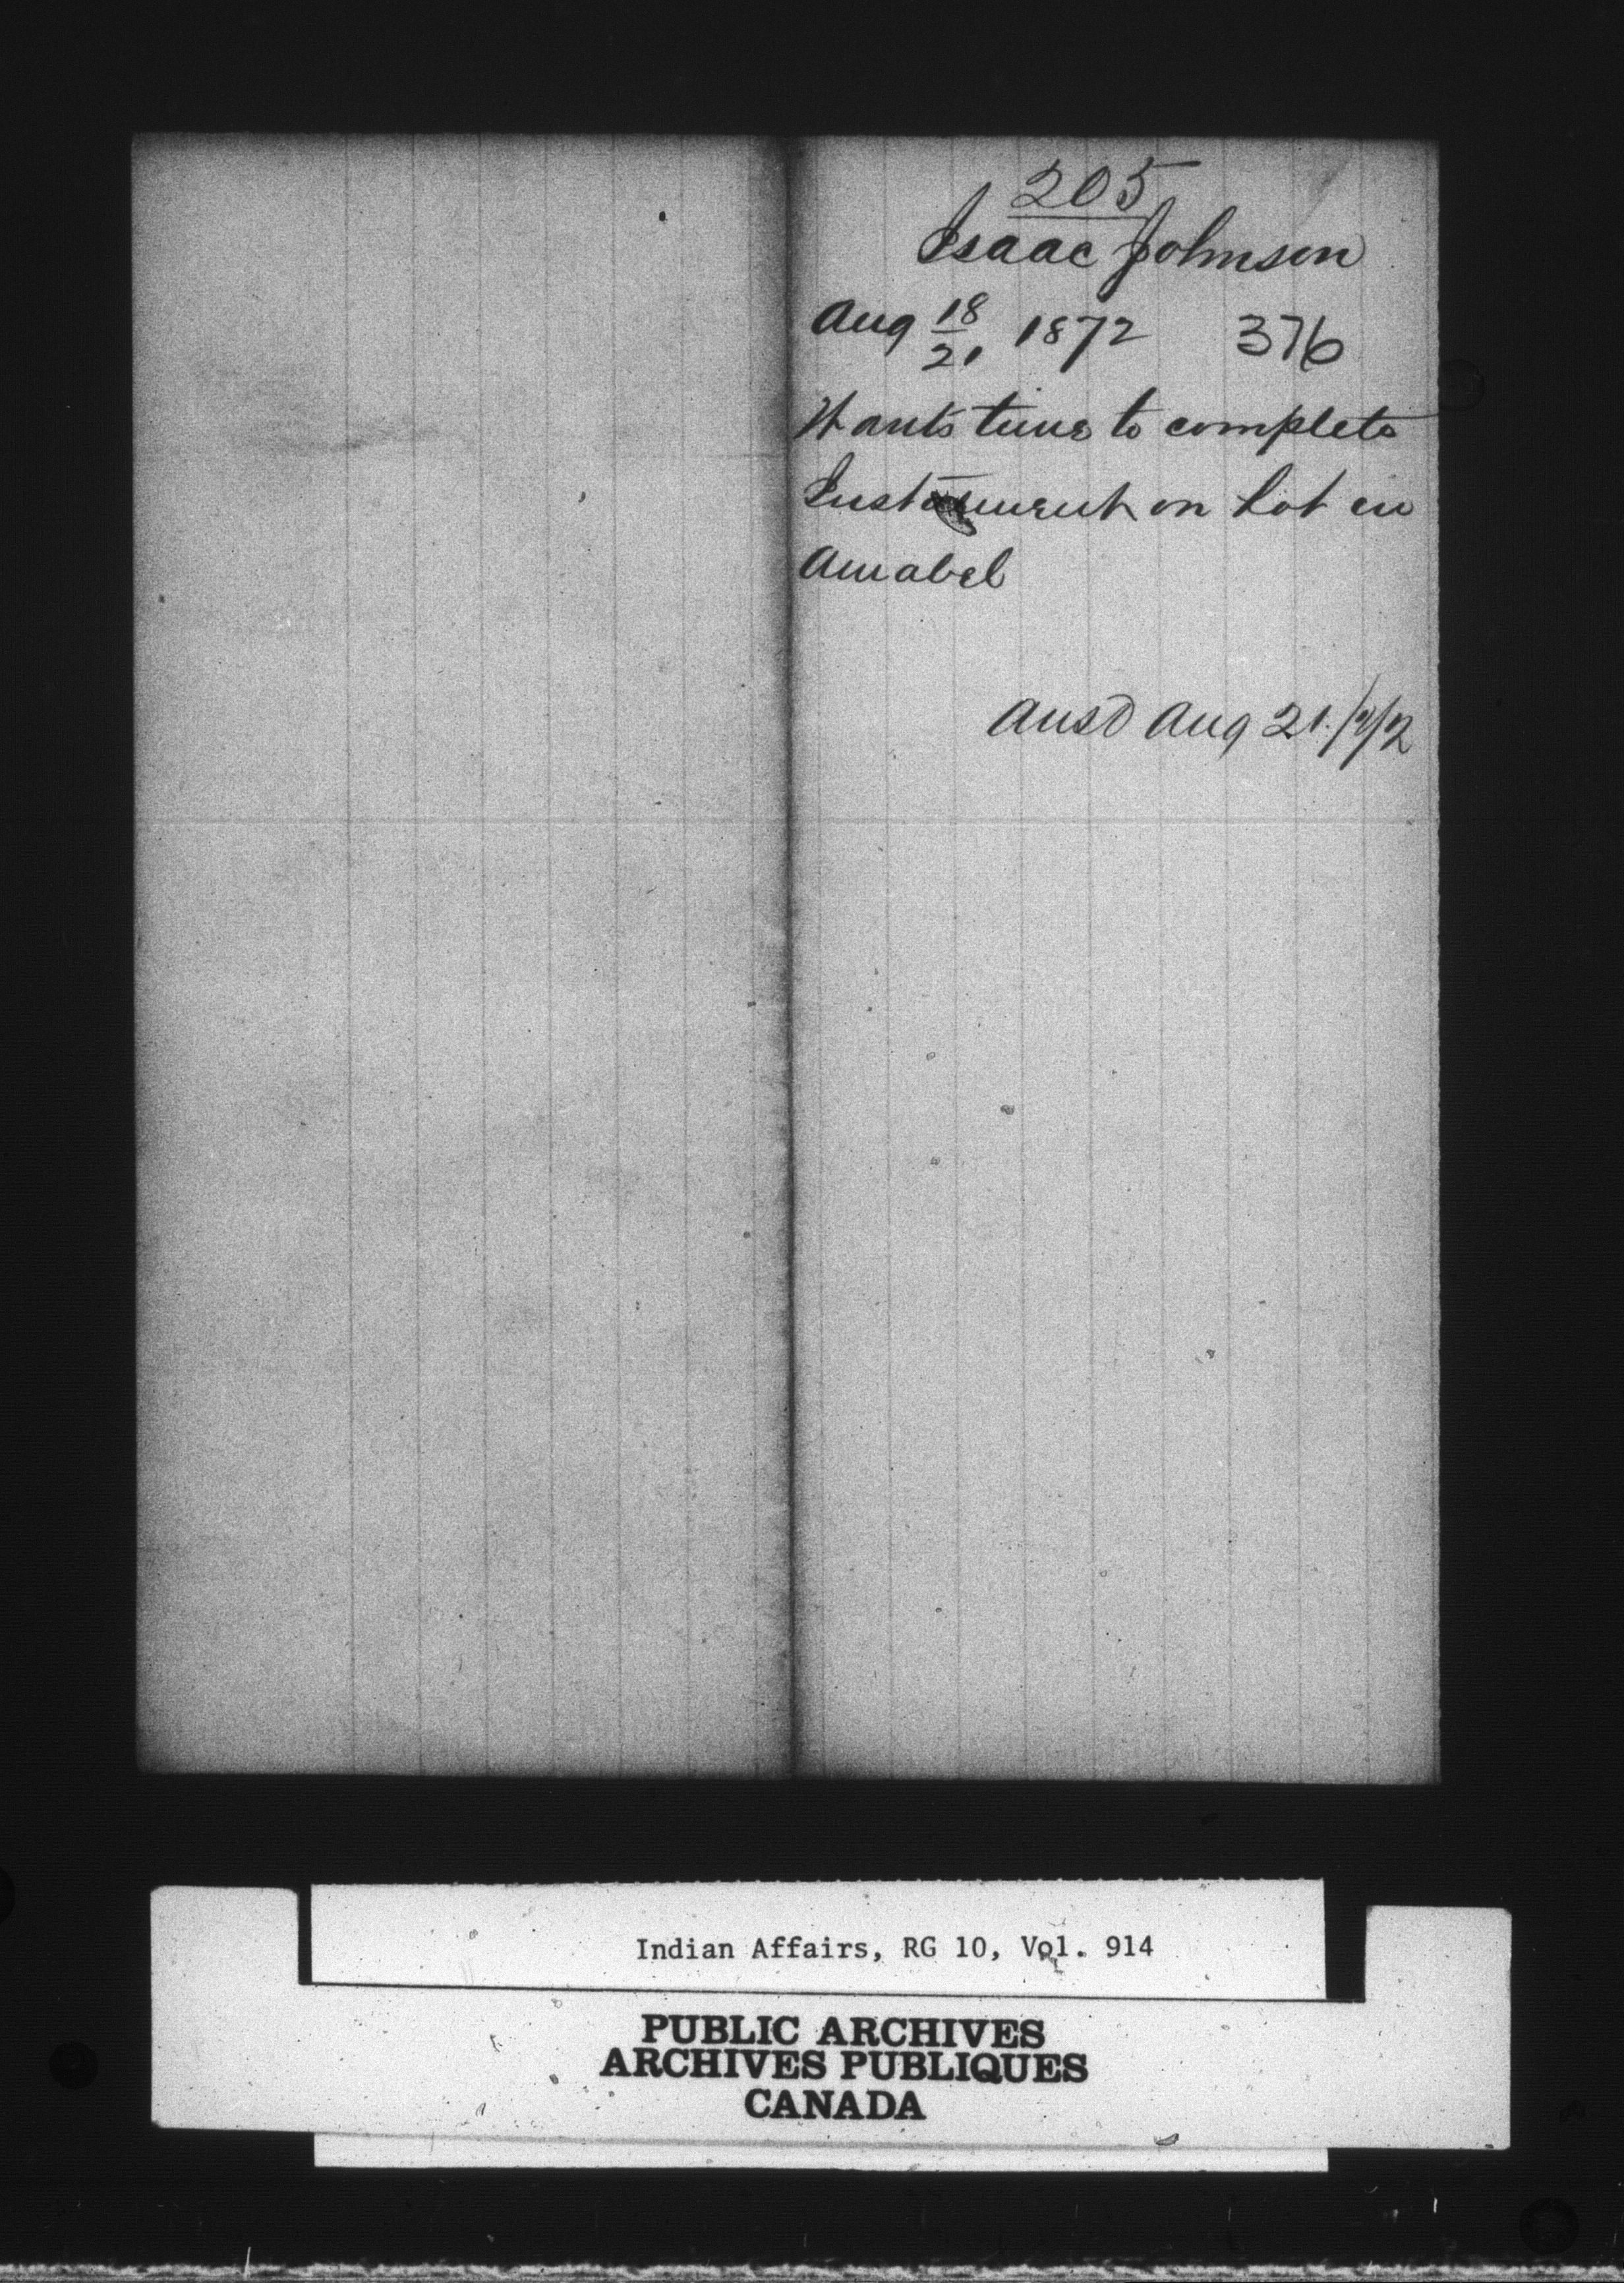 205
Isaac Johnson
Aug 18/21 1872 376
Wants time to complete
Instalment on Lot in
Amabel
Ansd Aug 21./72
Indian Affairs, RG 10, Vol. 914
PUBLIC ARCHIVES
ARCHIVES PUBLIQUES
CANADA